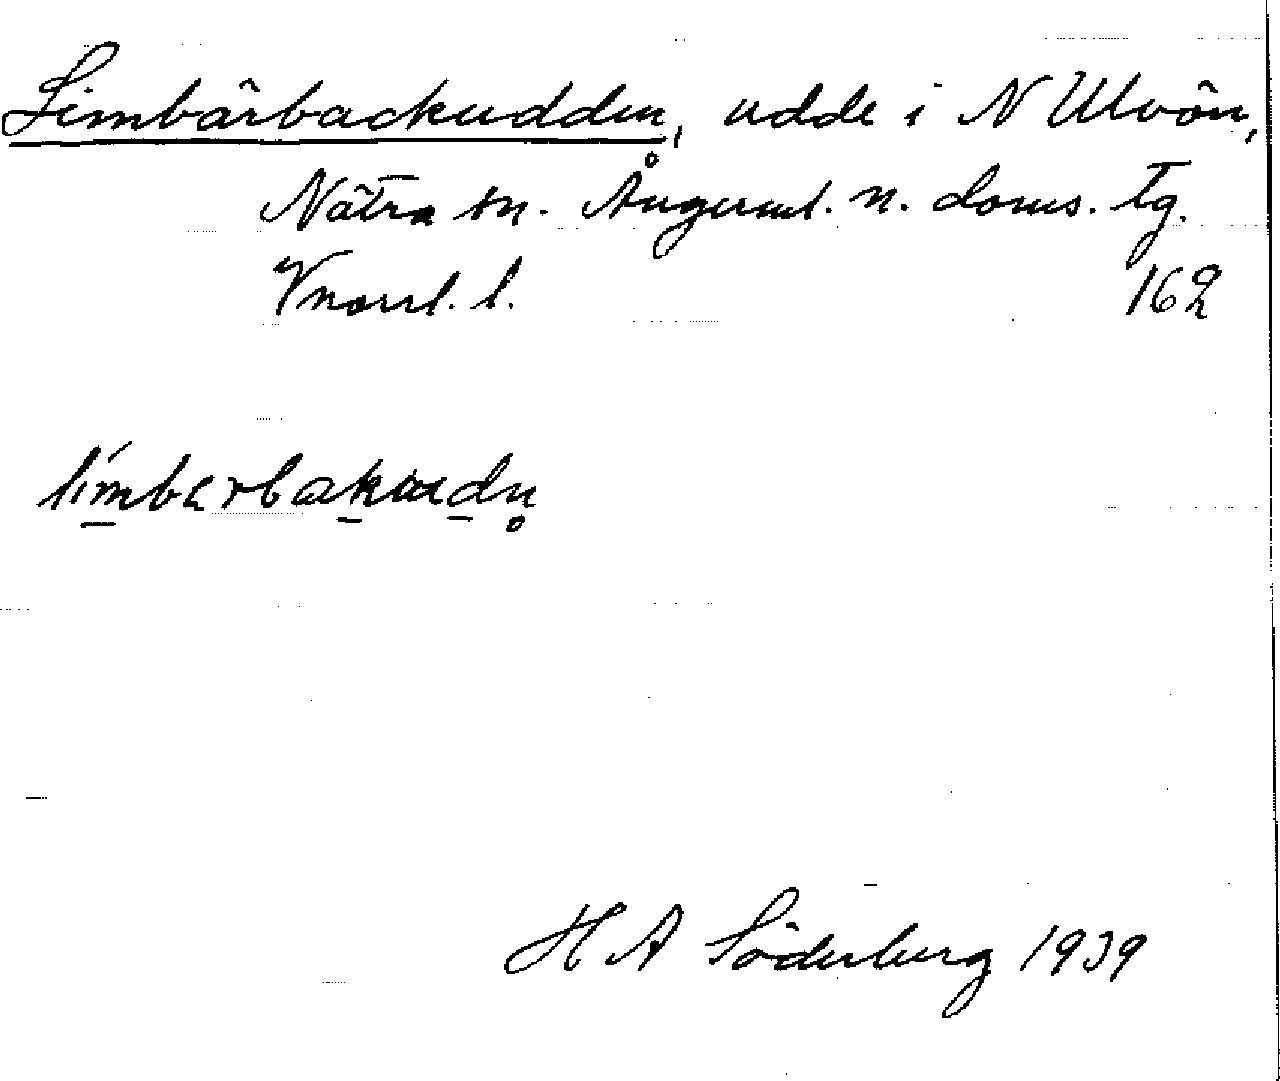 Limbärbackudden, udde i N Ulvön,
Nätra sn. Ångerml. n. doms. tg.
Vnorrl. l. 162
H A Söderberg 1939